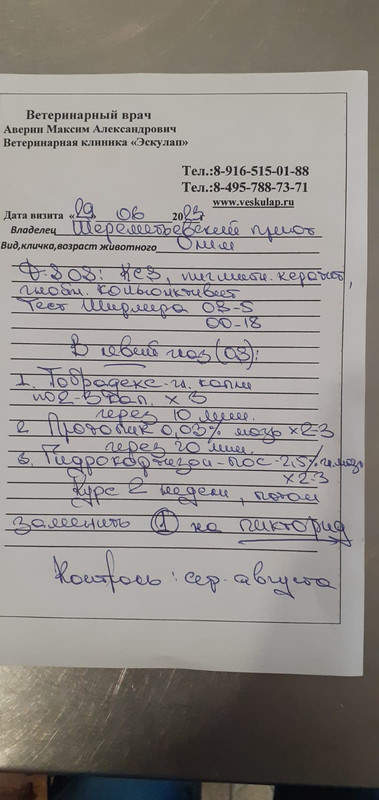 Ветеринарный врач
Аверин Максим Александрович
Ветеринарная клиника «Эскулап»
Тел.:8-916-515-01-88
Тел.:8-495-788-73-71
www.veskulap.ru
Дата визита «29» 06 2023
Владелец Шереметьевский приют
Вид,кличка,возраст животного Оним
Д-з OS: КСЗ, пигментн. кератит,
глобти. конъюнктивит
Тест Ширмера OS-5
OD-18
В левый глаз (OS):
1. Тобрадекс-гл. капли
по 2-3 кап. х 3
через 10 мин.
2. Протопик 0,03% мазь х2-3
через 20 мин.
3. Гидрокортизон-ПОС-2,5% гл.мазь
х2-3
Курс 2 недели, потом
заменить ① на пикторид
Контроль: сер. августа